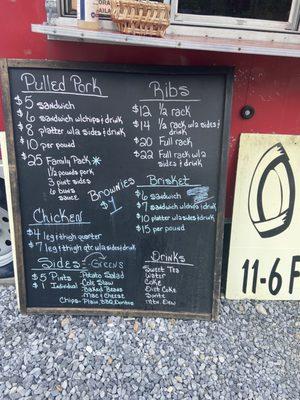 Pulled Pork
$5 sandwich
$6 sandwich w/chips & drink
$8 platter w/2 sides & drink
$10 per pound
$25 Family Pack *
1½ pounds pork
3 pint sides
6 buns
sauce
Brownies
$1
Chicken
$4 leg & thigh quarter
$7 leg & thigh qtr w/2 sides & drink
Sides - Greens
$5 Pints
$1 Individual
Potato Salad
Cole Slaw
Baked Beans
Mac & Cheese
Chips - Plain, BBQ, Doritos
Ribs
$12 ½ rack
$14 ½ rack w/2 sides &
drink
$20 Full rack
$22 Full rack w/2 sides
& drink
Brisket
$6 sandwich
$7 sandwich w/chips & drink
$10 platter w/2 sides & drink
$15 per pound
Drinks
Sweet Tea
Water
Coke
Diet Coke
Sprite
Mtn. Dew
11-6 F